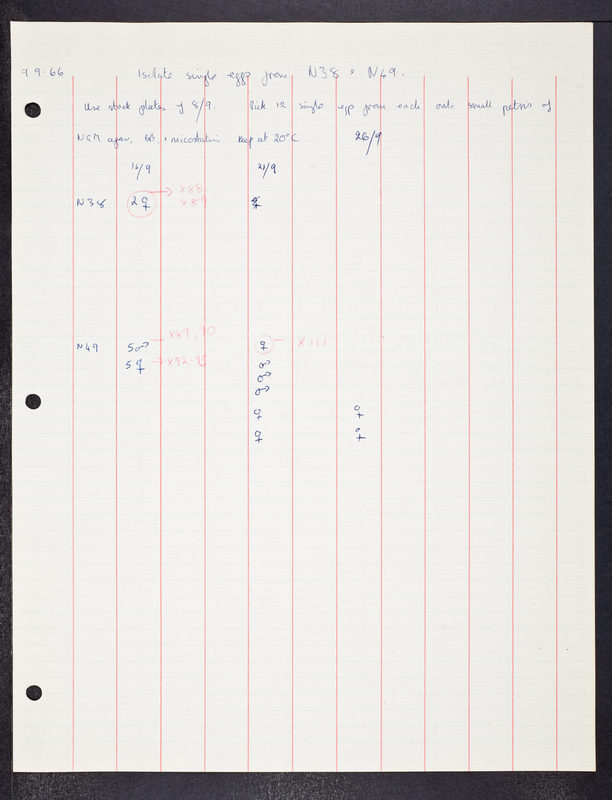 9.9.66. Isolate single eggs from N38 & N49.
Use stock plates of 8/9. Pick 12 single eggs from each onto small petris of
NGM agar, + micostatin. Keep at 20°C 26/9
16/9 21/9
N38 2♀ → x88 ♀
x89
N49 5♂ – x89, 90 ♀ – x111
5♀ → x92-95 ♂
♂
♂
♀ ♀
♀ ♀